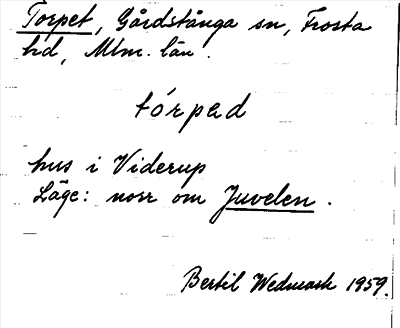 Torpet, Gårdstånga sn, Frosta
hd, Mlm. län.
tórpad
hus i Viderup
Läge: norr om Juvelen.
Bertil Wedmark 1959.